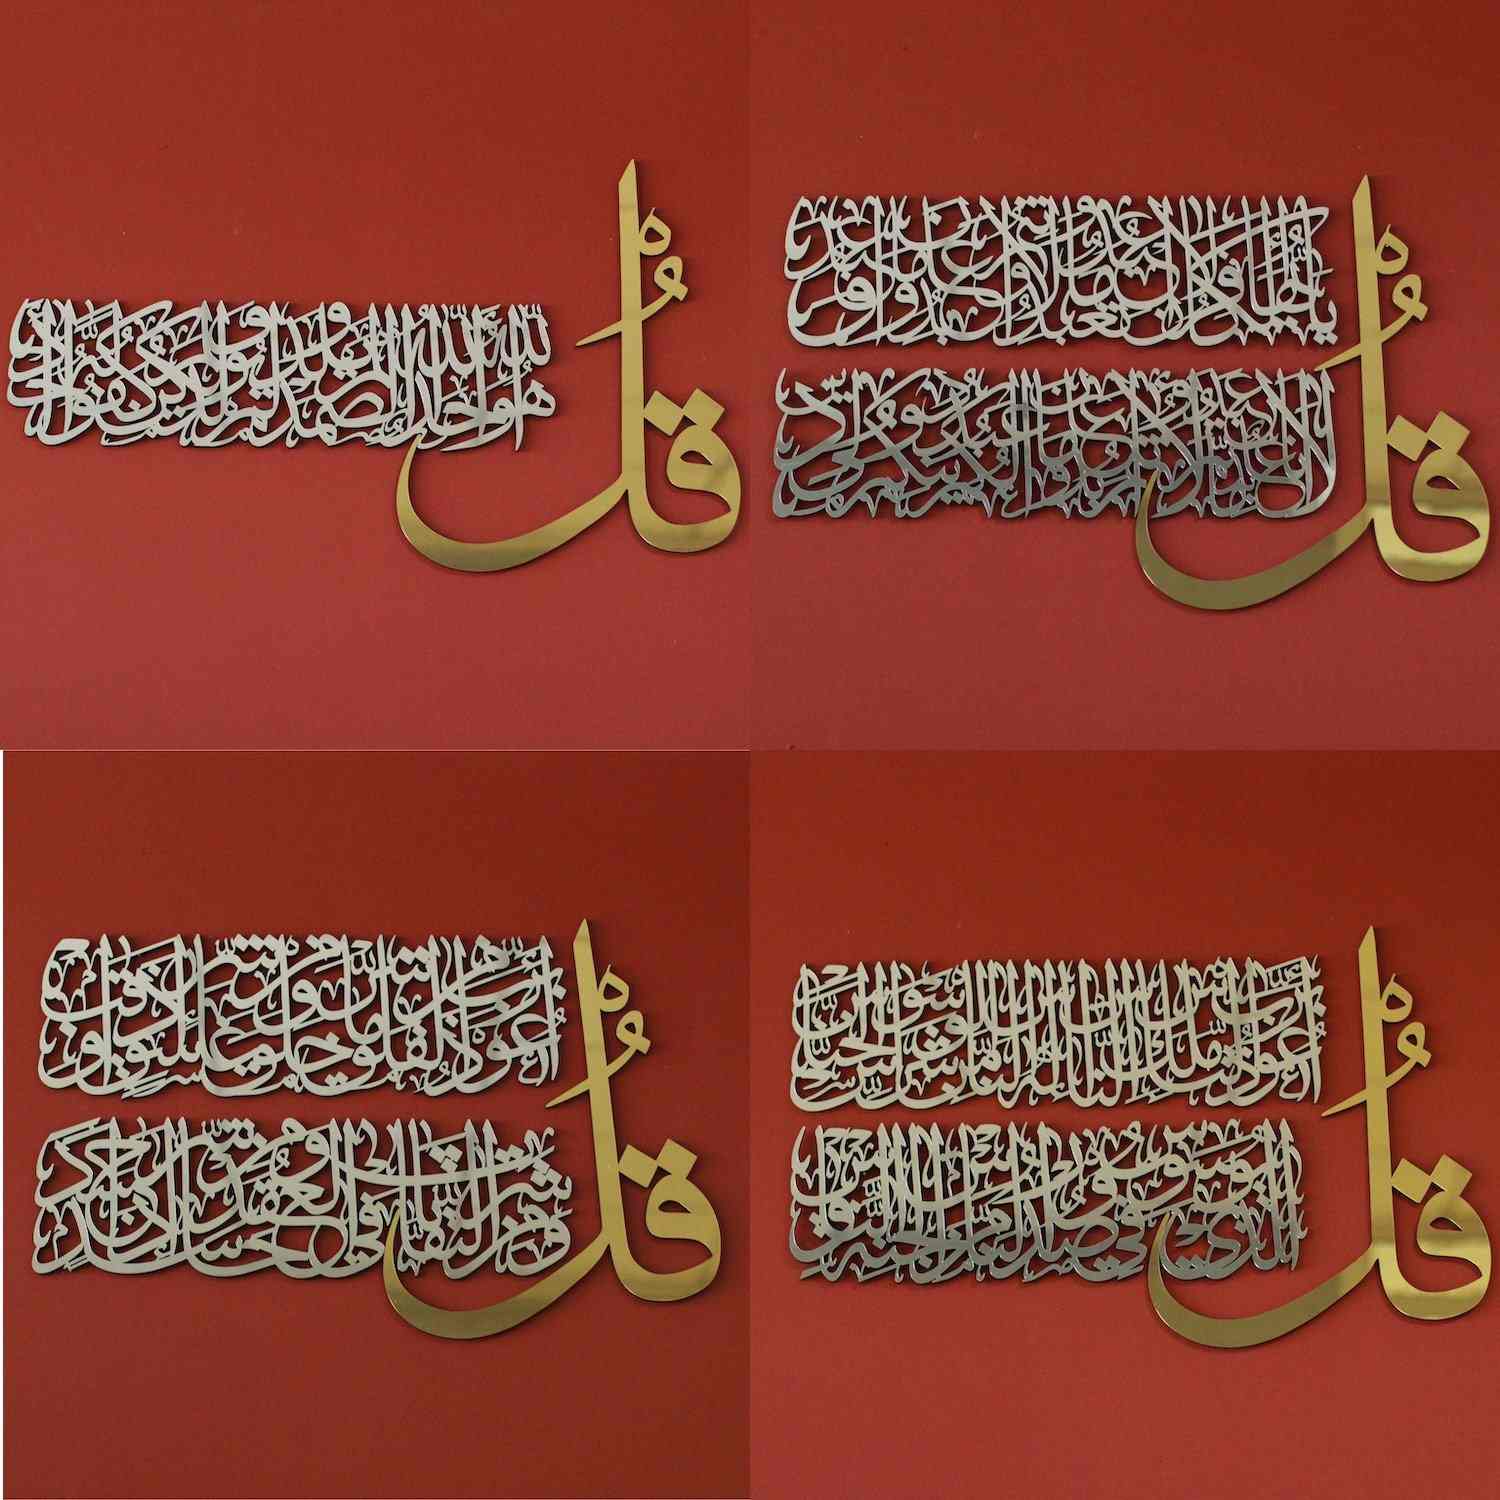 قُلْ هُوَ اللَّهُ أَحَدٌ اللَّهُ الصَّمَدُ لَمْ يَلِدْ وَلَمْ يُولَدْ وَلَمْ يَكُنْ لَهُ كُفُوًا أَحَدٌ
قُلْ يَا أَيُّهَا الْكَافِرُونَ لَا أَعْبُدُ مَا تَعْبُدُونَ وَلَا أَنْتُمْ عَابِدُونَ مَا أَعْبُدُ
وَلَا أَنَا عَابِدٌ مَا عَبَدْتُمْ وَلَا أَنْتُمْ عَابِدُونَ مَا أَعْبُدُ لَكُمْ دِينُكُمْ وَلِيَ دِينِ
قُلْ أَعُوذُ بِرَبِّ الْفَلَقِ مِنْ شَرِّ مَا خَلَقَ وَمِنْ شَرِّ غَاسِقٍ إِذَا وَقَبَ
وَمِنْ شَرِّ النَّفَّاثَاتِ فِي الْعُقَدِ وَمِنْ شَرِّ حَاسِدٍ إِذَا حَسَدَ
قُلْ أَعُوذُ بِرَبِّ النَّاسِ مَلِكِ النَّاسِ إِلَهِ النَّاسِ مِنْ شَرِّ الْوَسْوَاسِ الْخَنَّاسِ
الَّذِي يُوَسْوِسُ فِي صُدُورِ النَّاسِ مِنَ الْجِنَّةِ وَالنَّاسِ